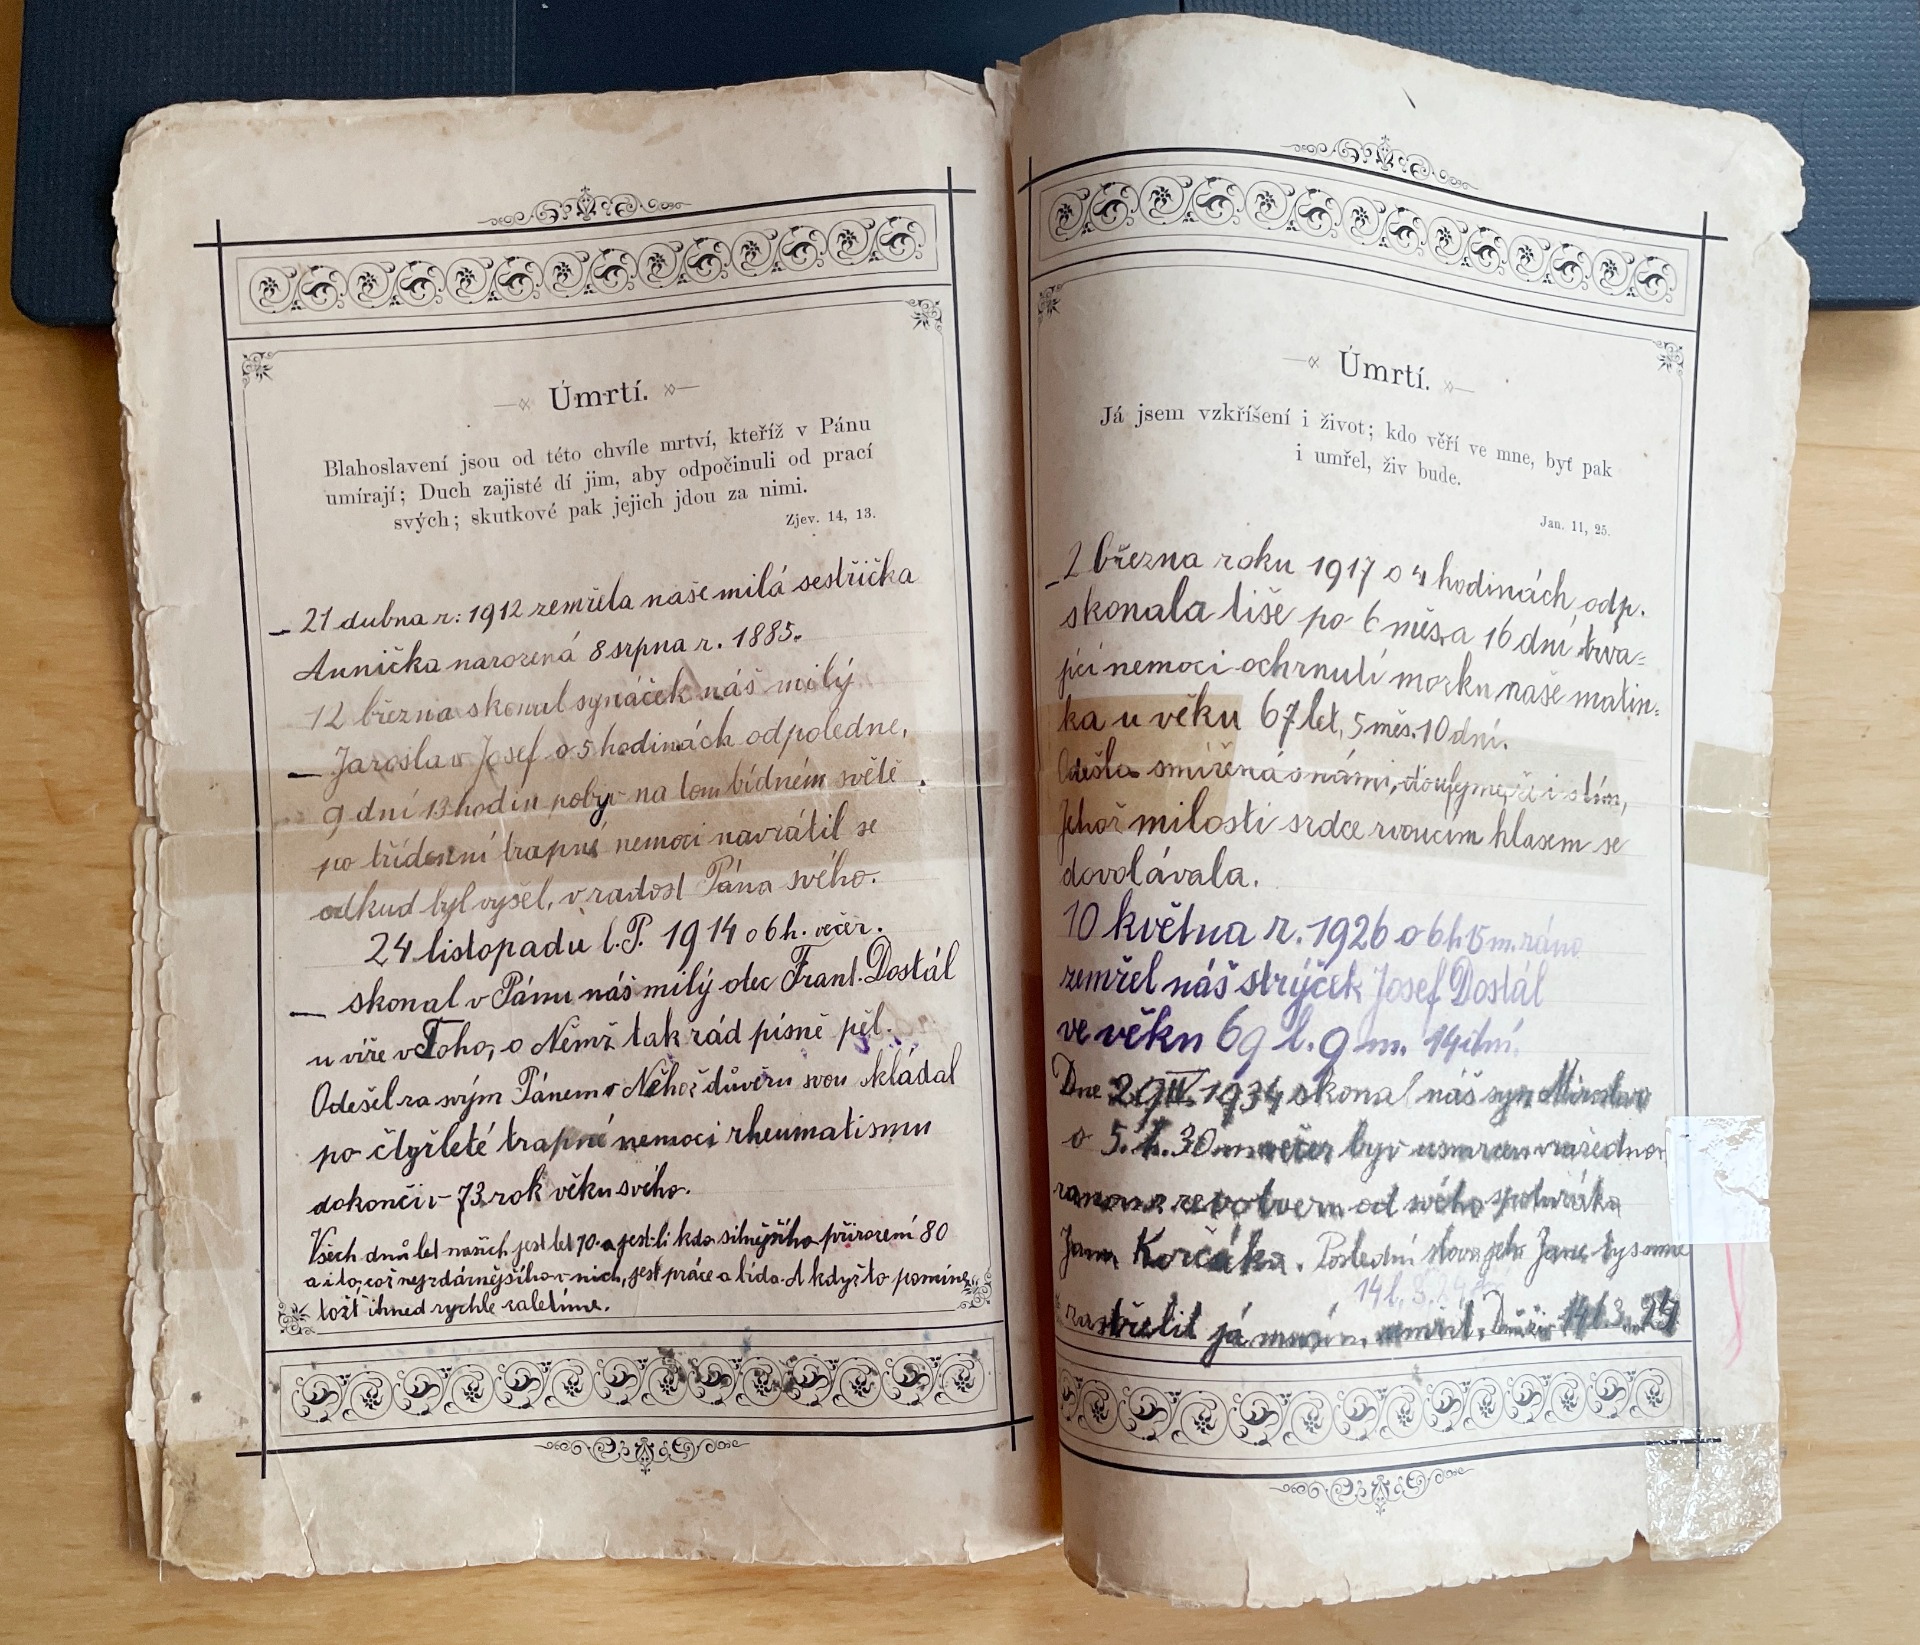 Úmrtí.
Blahoslavení jsou od této chvíle mrtví, kteříž v Pánu
umírají; Duch zajisté dí jim, aby odpočinuli od prací
svých; skutkové pak jejich jdou za nimi.
Zjev. 14, 13.
21 dubna r: 1912 zemřela naše milá sestřička
Annička narozená 8 srpna r. 1885.
12 března skonal synáček náš milý
Jaroslav Josef o 5 hodinách odpoledne,
9 dní 13 hodin pobyv na tom bídném světě
po třídenní trapné nemoci navrátil se
odkud byl vyšel, v radost Pána svého.
24 listopadu l. P. 1914 o 6 h. večer.
skonal v Pánu náš milý otec Frant. Dostál
u víře v Toho, o Němž tak rád písně pěl.
Odešel za svým Pánem v Něhož důvěru svou skládal
po čtyřleté trapné nemoci rheumatismu
dokončiv 73 rok věku svého.
Všech dnů let našich jest let 70 a jest-li kdo silnějšího přirození 80
a i to, což nejzdárnějšího v nich, jest práce a bída. A když to pomine,
tožť ihned rychle zaletíme.
Úmrtí.
Já jsem vzkříšení i život; kdo věří ve mne, byť pak
i umřel, živ bude.
Jan. 11, 25.
2 března roku 1917 o 4 hodinách odp.
skonala tiše po 6 měs. a 16 dní trva=
jící nemoci ochrnutí mozku naše matin=
ka u věku 67 let, 5 měs. 10 dní.
Odešla smířená s námi, i s tím,
Jehož milosti srdce rvoucím hlasem se
dovolávala.
10 května r. 1926 o 6 h. 15 m. ráno
zemřel náš strýček Josef Dostál
ve věku 69 l. 9 m. 14 dní.
Dne 1934 skonal náš syn Miroslav
o 5. h. 30 m večer byv usmrcen vražednou
ranou z revolveru od svého spolužáka
Jana Korčáka. Poslední slova jeho Jane tys mne
14 l.
zastřelil já musím umřít. 14 l. 3 m. 24